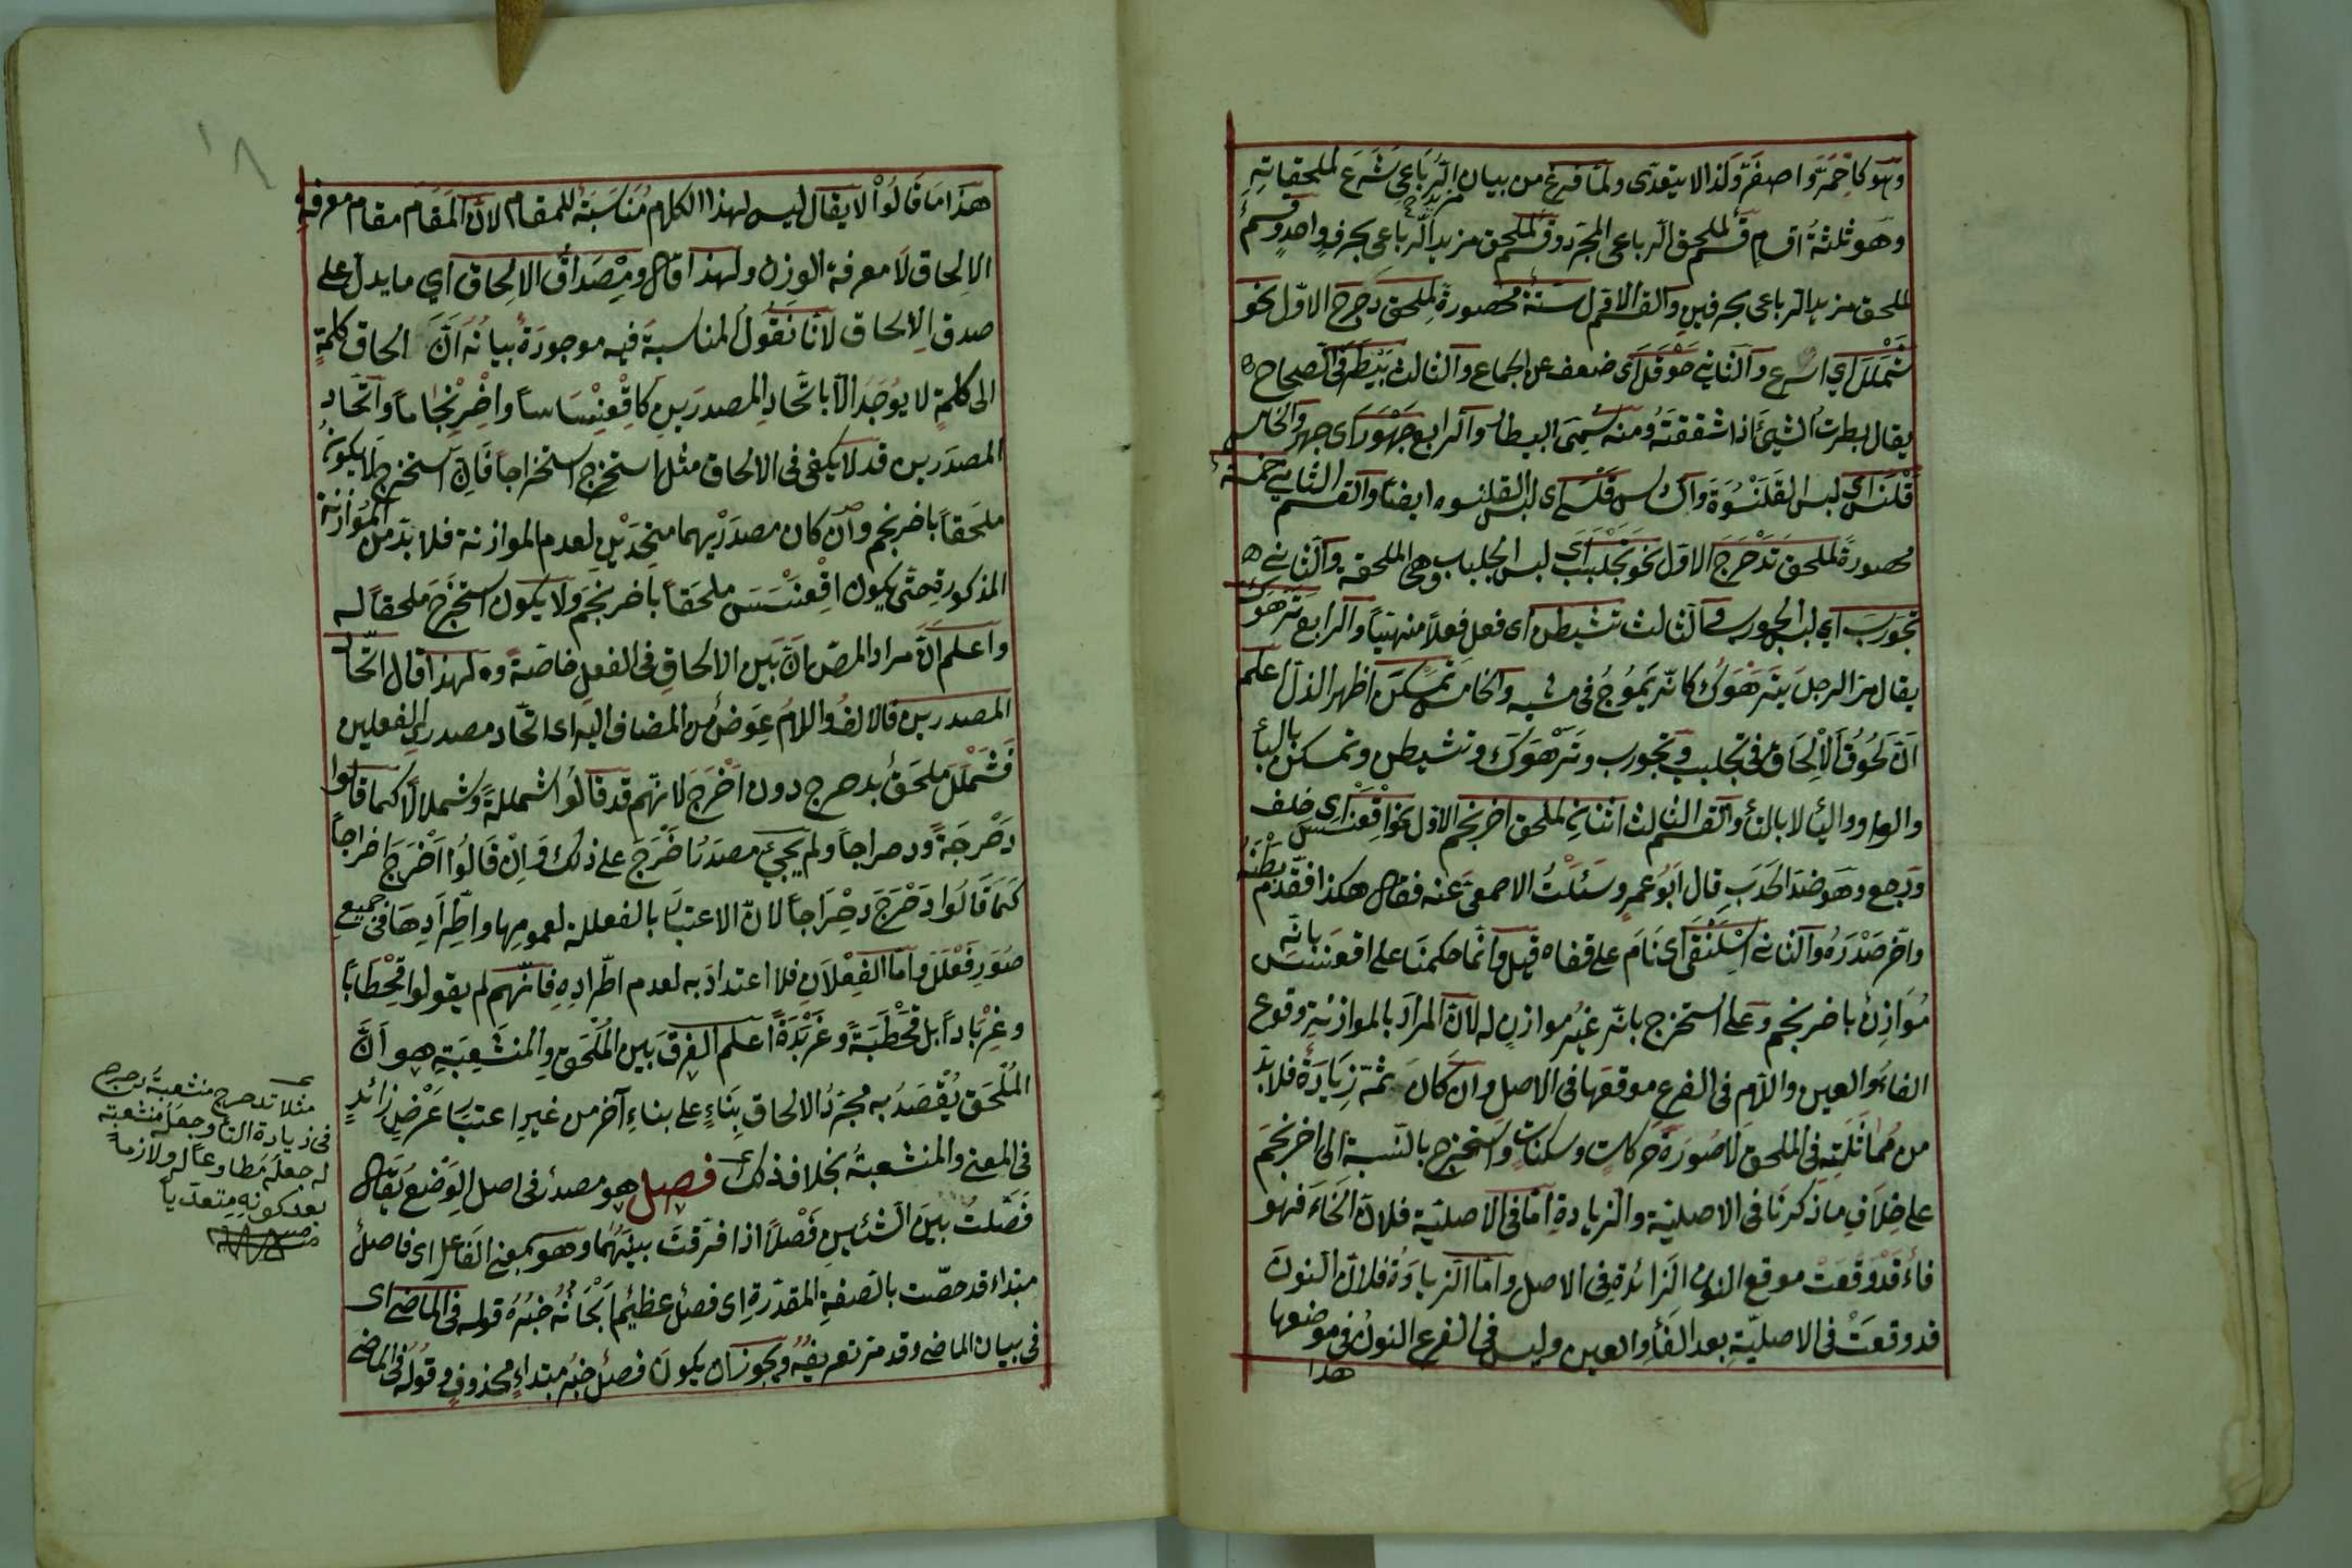 وهو كاحمرّ واصفرّ ولذا لا يتعدى ولمّا فرغ من بيان مزيد الرُّباعي شَرَعَ لملحقاتِهِ
وهو ثلثةُ اقسام قسم لملحق الرباعى المجرّد وقسم لملحق مزيد الرّباعى بحرفٍ واحدٍ وقسمٌ
لملحق مزيد الرباعى بحرفينِ والقسم الاوّل ستّة محصورة لملحق دَحْرَجَ الاوّل نحو
شَمْلَلَ اي اسرع والثاني حَوْقَلَ اى ضعف عن الجماع والثالث بَيْطَرَ فى الصحاح
يقال بطرتُ الشيئَ اذا شققتَهُ ومنه سُمِّيَ البيطار والرابع جَهْوَرَ اى جهر والخامس
قَلْنَسَ اى لبس القَلَنْسُوَةَ والسادس قَلْسَى اى لبس القلنسوه ايضًا والقسم الثاني خمسة
محصورة لملحق تَدَحْرَجَ الاوّل نحو تَجَلْبَبَ اى لبس الجلباب وهى الملحقه والثاني
تجَوْرَبَ اي لبس الجورب والثالث تشيطن اى فعل فعلاً منهتيًا والرابع تَرَهْوَكَ
يقال مرّ الرجل يترَهْوَكُ كانّه يَمُوجُ فى مشيه والخامس تَمَسْكَنَ اظهر الذلّ اعلم
اَنّ لُحُوقَ الْاِلْحَاق فى تجلبب وتجورب وتَرَهْوَكَ وتشيطن وتمسكن بالبأ
والواو واليأ لا بالتأ والقسم الثالث اثنان لملحق اخرنجم الاوّل نحو اِقْعَنْسَسَ اى خلف
ورجع وهو ضدّ الحَدَبِ قال ابُو عمرٍو سَئَلْتُ الاصمعىّ عنه فقال هكذا فقدّم بَطْنَهُ
واخّر صَدْرَهُ والثانى اسْلَنْقَى اى نَامَ على قفاه قيل وانّما حكمنا على اقعنسس بانّه
مُوَازِنٌ باخرنجم وعلى استخرج بانّه غيرُ موازنٍ له لانّ المرادَ بالموازنةِ وقوع
الفاءِ والعين واللّام فى الفرع موقعها فى الاصل وان كان ثمّة زِيَادَةٌ فلا بدّ
من مُمَاثَلَتِهِ فى الملحق لا صُورَة حركاتٍ وسكنات واستخرج بالنّسبة الى اخرنجَمَ
على خِلَافِ ما ذكرنَا فى الاصليّة والزيادةِ امّا فى الاصليّة فلانّ الخَاءَ فهو
فاءٌ قَدْ وَقَعَتْ موقع النون الزّائدةِ فى الاصل وامّا الزّيادَة فلانّ النونَ
قد وقعَتْ فى الاصليّةِ بعد الفأ والعين وليس فى الفرع النونُ فى موضعها
هذا
هذا ما قَالُوْا لا يقال ليس لهذا الكلام مُنَاسَبَةٌ للمقام لانّ المَقَامَ مقام معرفةِ
الالِحاق لَا معرفة الوزن ولهذا قال ومِصْدَاقُ الالِحاق اي ما يدلّ على
صدق الِالحاق لانّا نَقُولُ المناسبةَ فيه موجودةٌ بيانُهُ اَنّ الحاق كلمةٍ
الى كلمةٍ لا يوُجَدُ الّا باتّحادِ المصدرَينِ كاقْعِنْسَاساً واخْرِنْجاماً واتّحاد
المصدَرين قد لا يكفى فى الالحاق مثل استخرج استخراجاً فَانّ استخرج لا يكونُ
ملحَقاً باخرنجم وان كان مصدَرَيهما متحِدَيْنِ لعدم الموازنة فلا بدّ من المُوَازَنَة
المذكورة حتّى يكون اقْعَنْسَسَ ملحَقاً باخرنجم ولا يكون استخرَجَ ملحقاً له
واعلم انّ مراد المصّ ان بَيّن الالحاقِ فى الفعلِ خاصّةً ولهذا قال اتّحاد
المصدرين فالالفُ واللامُ عِوَضٌ من المضاف اليه اى اتّحاد مصدرَىِ الفعلين
فَشَمْلَلَ ملحَقٌ بدحرج دون اَخْرَجَ لانّهم قد قالُوا شمللةً وشملالاً كما قالوا
دَحْرَجَةً ودحراجاً ولم يجيئ مصدَرُ اَخْرَجَ على ذلك وَاِنْ قَالُوا اَخْرَجَ اِخراجاً
كَمَا قَالُوا دَحْرَجَ دِحْرَاجاً لانّ الاعتبَارَ بالفعللة لعمومها واطّرَادِهَا فى جميع
صُوَرِ فَعْلَلَ وامّا الفِعْلَال فلا اعتدادَ به لعدم اطّرادِهِ فانّهم لم يقولوا قِحْطَابًا
وعِرْبَاداً بل قَحْطَبَةً وعَرْبَدَةً اعلم الفرقَ بين المُلْحَق والمُنْشَعِبَةِ هو اَنَّ
المُلْحَق يُقْصَدُ به مجرّدُ الالحاق بِنَاءٍ على بناءِ آخر من غيرِ اعتبار غَرْضٍ زائدٍ
فى المعنى والمنشعبةُ بخلاف ذلك فصل هو مصدرٌ فى اصل الوَضْعِ يُقال
فَصَلتُ بينَ الشئين فَصْلاً اذا فَرَقْتَ بينَهُما وهو بمعنى الفَاعل اى فاصلٌ
مبتداء قد خصّت بالصفةِ المقدّرةِ اى فصلٌ عظيم اَبْحَاثُهُ خبرُهُ قوله فى الماضى اى
فى بيان الماضى وقد مرّ تعريفُهُ ويجوزُ ان يكونَ فصلٌ خبرُ مبتداءٍ محذوفٍ وقولُه فى الماضى
مثلا تدحرج منشعبةُ دحرج
فى زيادة التاء وجعلُه منشعبة
له جعلُه مُطاوعاً له ولازماً
بعد كونه متعدّياً